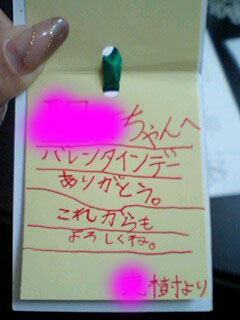 ちゃんへ
バレンタインデー
ありがとう。
これからも
よろしくね。
樹より